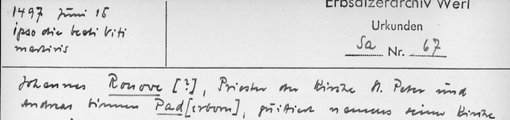 1497 Juni 15
ipso die beati Viti
martiris
Erbsälzerarchiv Werl
Urkunden
Sa Nr. 67
Johannes Ronove [?], Priester der Kirche St. Peter und
Andreas binnen Pad[erborn], quitiert namens seiner Kirche